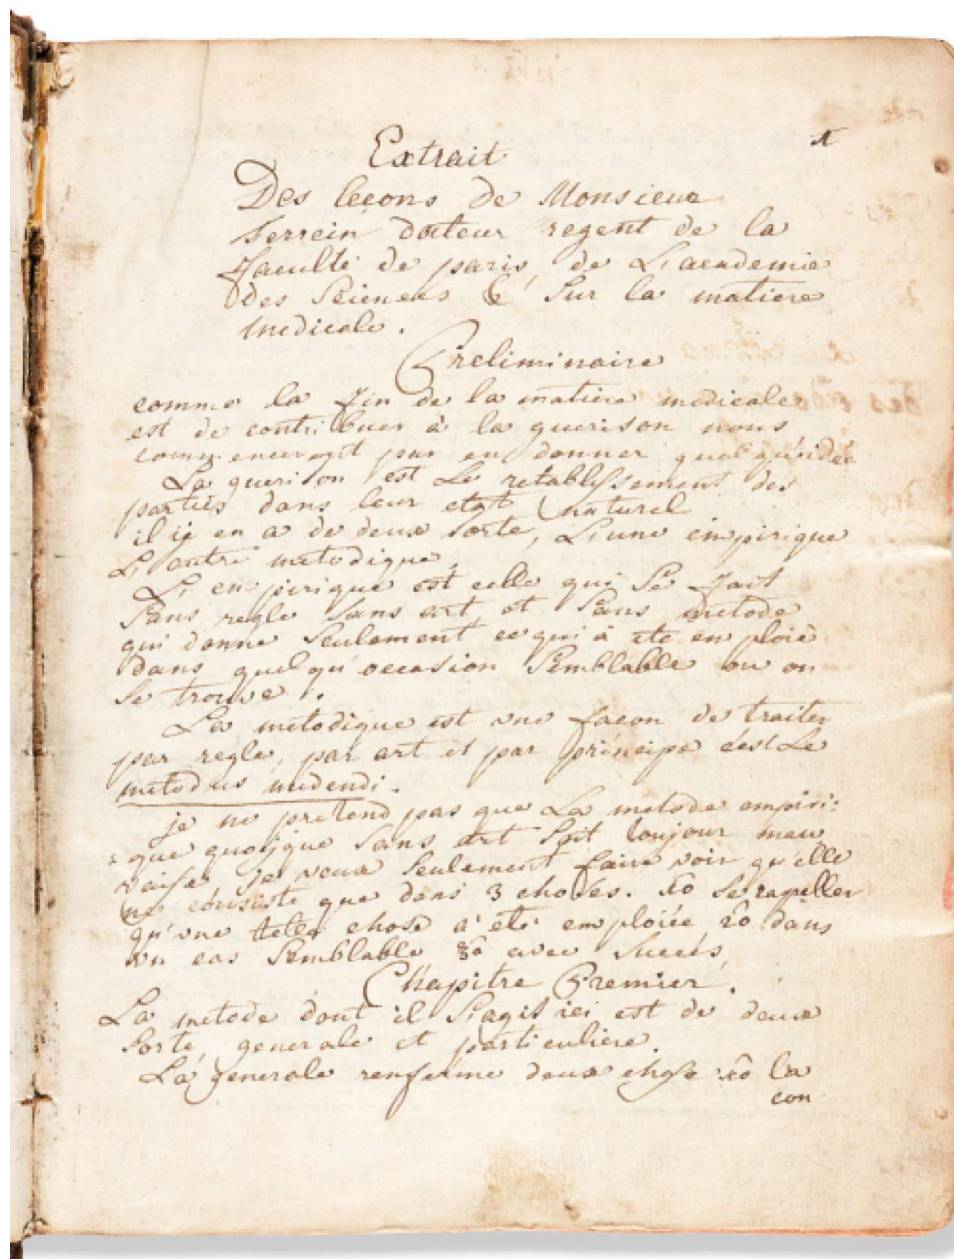 1
Extrait
Des leçons de Monsieur
ferrein docteur regent de la
faculté de paris, de L'academie
des Sciences &c Sur la matiere
medicale.
Preliminaire
comme la fin de la matiere medicale
est de contribuer à la guerison nous
commenceront par en donner quelqu'idée
La guerison est Le retablissement des
parties dans leur etat naturel
il ij en a de deux Sorte, L'une empirique
L'autre metodique,
L'enpirique est celle qui Se fait
Sans regle Sans art et Sans metode
qui donne Seulement ce qui à ete emploié
dans quelqu'occasion Semblable ou on
Se trouve.
La metodique est une façon de traiter
par regle, par art et par principe c'est Le
metodus medendi.
je ne pretend pas que La metode empiri=
=que quoijque Sans art Soit toujour mau
vaise, je veux Seulement faire voir qu'elle
ne consiste que dans 3 choses. 1o Se rapeller
qu'une telle chose a été emploiée 2o dans
un cas Semblable 3o avec Succès,
Chapitre Premier.
La metode dont il S'agit ici est de deux
Sorte, generale et particuliere.
La generale renferme deux chose 1o la
con